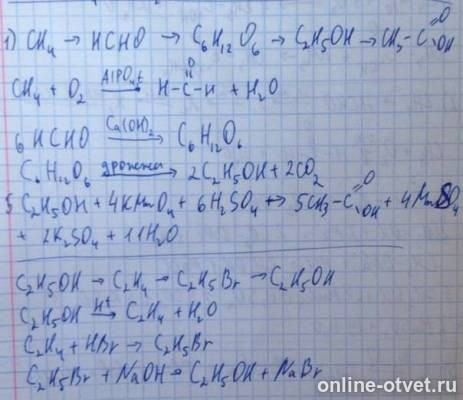 1) CH₄ → HCHO → C₆H₁₂O₆ → C₂H₅OH → CH₃-C(=O)OH
CH₄ + O₂ —AlPO₄,t→ H-C(=O)-H + H₂O
6HCHO —Ca(OH)₂→ C₆H₁₂O₆
C₆H₁₂O₆ —дрожжи→ 2C₂H₅OH + 2CO₂
5C₂H₅OH + 4KMnO₄ + 6H₂SO₄ → 5CH₃-C(=O)OH + 4MnSO₄
+ 2K₂SO₄ + 11H₂O
C₂H₅OH → C₂H₄ → C₂H₅Br → C₂H₅OH
C₂H₅OH —H⁺→ C₂H₄ + H₂O
C₂H₄ + HBr → C₂H₅Br
C₂H₅Br + NaOH → C₂H₅OH + NaBr
online-otvet.ru